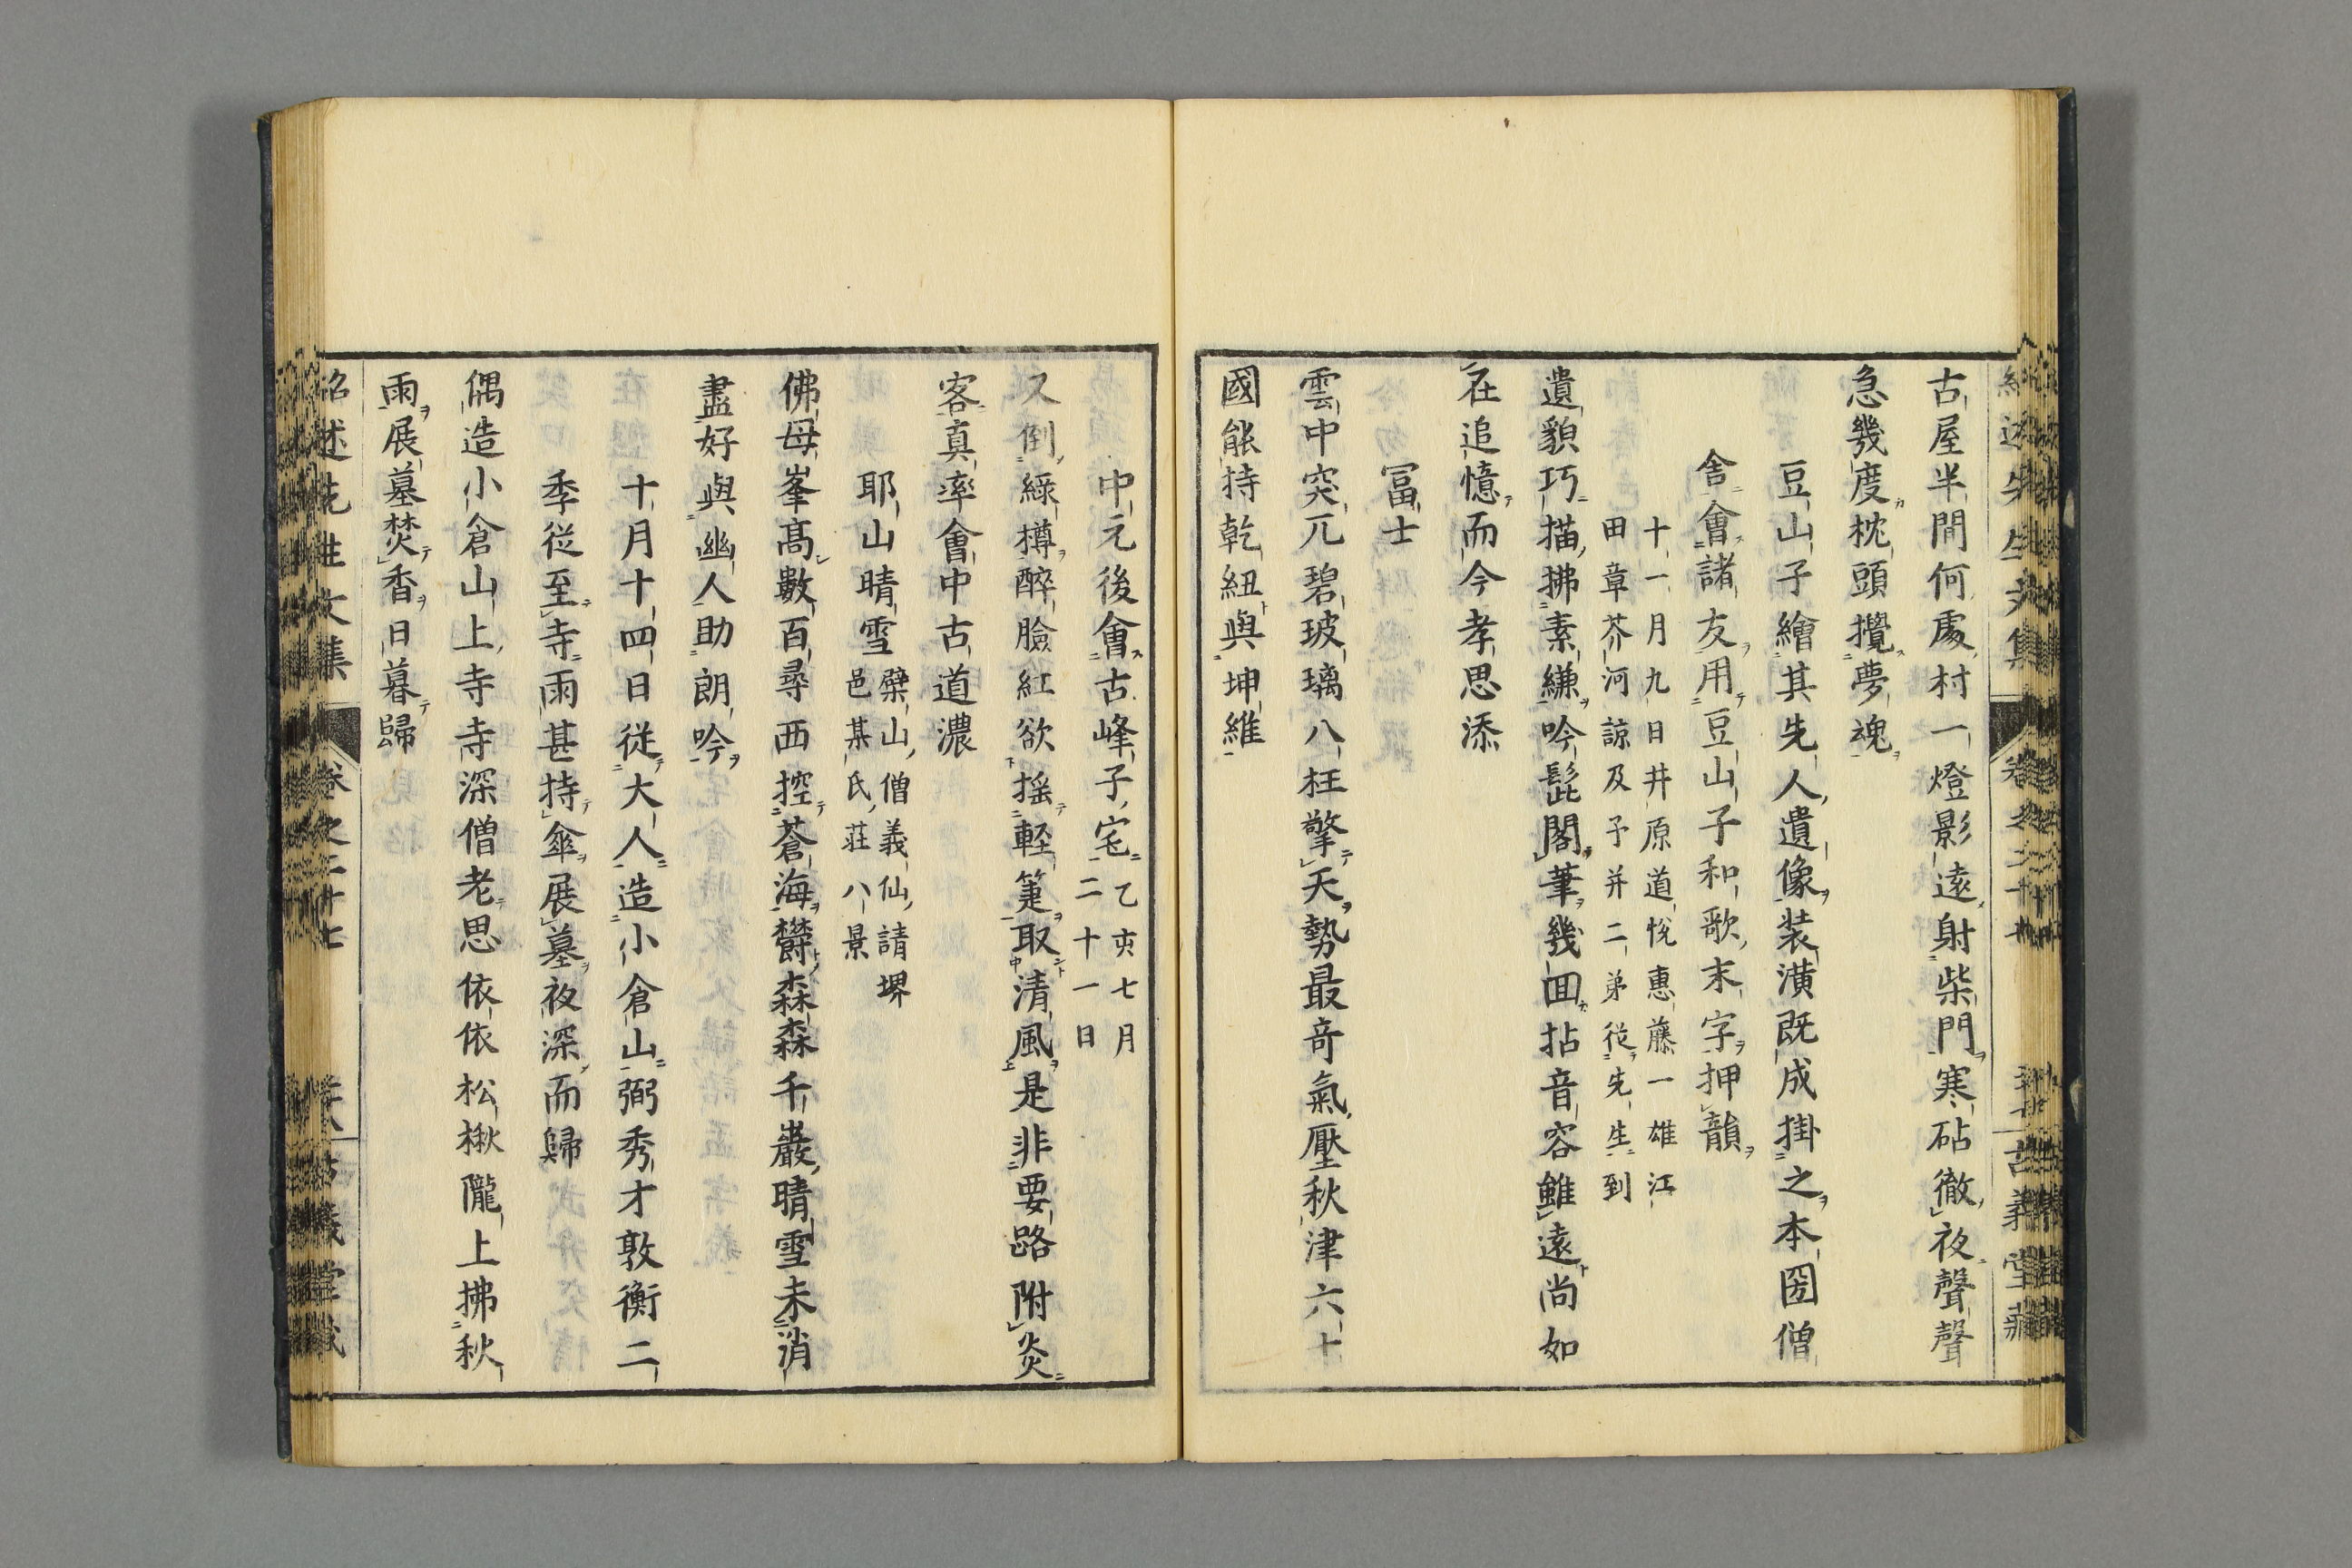 古屋半間何處村一燈影遠射柴門寒砧徹夜聲聲
急幾度枕頭攪夢魂
豆山子繪其先人遺像装潢既成掛之本圀僧
舎會諸友用豆山子和歌末字押韻
十一月九日井原道悅惠藤一雄江
田章芥河諒及予并二弟從先生到
遺貌巧描拂素縑吟髭閣筆幾回拈音容雖遠尚如
在追憶而今孝思添
冨士
雲中突兀碧玻璃八枉擎天勢最竒氣壓秋津六十
國能持乾紐與坤維
中元後會古峰子宅
乙亥七月
二十一日
又倒綠樽醉臉紅欲揺軽箑取清風是非要路附炎
客真率會中古道濃
耶山晴雪
檗山僧義仙請堺
邑某氏莊八景
佛母峯髙數百尋西控蒼海欝森森千巖晴雪未消
盡好與幽人助朗吟
十月十四日從大人造小倉山弼秀才敦衡二
季從至寺雨甚持傘展墓夜深而歸
偶造小倉山上寺寺深僧老思依依松楸隴上拂秋
雨展墓焚香日暮歸
紹述先生文集 卷之二十七 古義堂藏